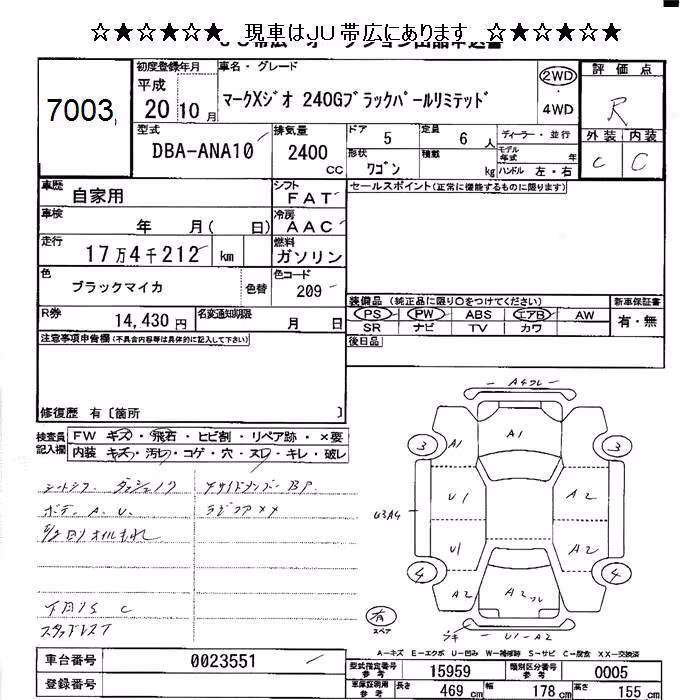 ☆★☆★☆★ 現車はJU帯広にあります ☆★☆★☆★
7003
初度登録年月
平成
20 10月
車名・グレード
マークXジオ 240Gブラックパールリミテッド
2WD
4WD
評価点
R
外装 内装
C C
型式
DBA-ANA10
排気量
2400
CC
ドア
5
定員
6 人
形状
ワゴン
積載
kg
ディーラー・並行
モデル年式 年
ハンドル 左・右
車歴
自家用
シフト
FAT
セールスポイント(正常に機能するものに限ります)
車検
年 月( 日)
冷房
AAC
走行
17万4千212 km
燃料
ガソリン
色
ブラックマイカ
色替
色コード
209
装備品 (純正品に限り○をつけてください)
PS PW ABS エアB AW
SR ナビ TV カワ
新車保証書
有・無
R券
14,430円
名変通知期限
月 日
後日品
注意事項申告欄(不具合内容等は具体的に記入して下さい)
修復歴 有〔箇所 〕
検査員記入欄
FW キズ・飛石・ヒビ割・リペア跡・×要
内装 キズ・汚レ・コゲ・穴・スレ・キレ・破レ
ボデー A、U、
オイルもれ
下廻りS C
スタッドレス
A4フレ
A1
3 A1 3
U1 A2
U3A4
U1 A2
4 4
A2 A2フレ A2
有
スペア
U1-A2
A-キズ E-エクボ U-凹み W-補修跡 S-サビ C-腐食 XX-交換済
車台番号
0023551
登録番号
型式指定番号参考
15959
類別区分番号参考
0005
車庫証明用参考
長さ 469 cm
幅 178 cm
高さ 155 cm